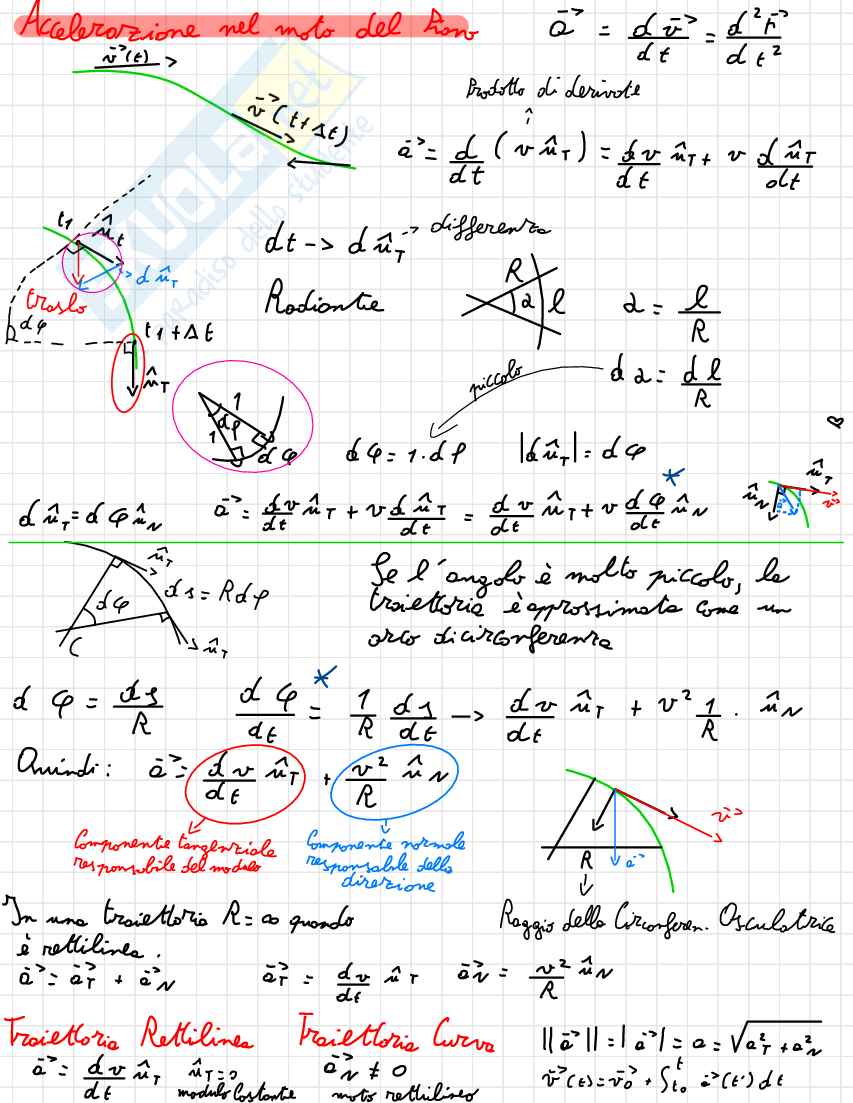 Accelerazione nel moto del Piano
a⃗ = d v⃗ / dt = d² r⃗ / d t²
v⃗(t)
v⃗(t+Δt)
Prodotto di derivate
a⃗ = d/dt (v û_T) = dv/dt û_T + v d û_T/dt
t1 û_t
d û_T
traslo
dφ
t1 + Δt
û_T
dt -> d û_T -> differenza
Radiante
R α l
α = l/R
piccolo
dα = dl/R
1 dφ 1 dφ
dφ = 1·dφ |d û_T| = dφ
û_N û_T v⃗
d û_T = dφ û_N a⃗ = dv/dt û_T + v d û_T/dt = dv/dt û_T + v dφ/dt* û_N
û_T
ds = R dφ
dφ
C û_T
Se l'angolo è molto piccolo, la
traiettoria è approssimata come un
arco di circonferenza
dφ = ds/R dφ/dt* = 1/R ds/dt -> dv/dt û_T + v² 1/R · û_N
Quindi: a⃗ = dv/dt û_T + v²/R û_N
Componente tangenziale
responsabile del modulo
Componente normale
responsabile della
direzione
v⃗
R a⃗
Raggio della Circonferen. Osculatrice
In una traiettoria R = ∞ quando
è rettilinea.
a⃗ = a⃗_T + a⃗_N a⃗_T = dv/dt û_T a⃗_N = v²/R û_N
Traiettoria Rettilinea Traiettoria Curva
a⃗ = dv/dt û_T û_T = 0
modulo Costante
a⃗_N ≠ 0
moto rettilineo
||a⃗|| = |a⃗| = a = √(a²_T + a²_N)
v⃗(t) = v⃗_0 + ∫_t0^t a⃗(t') dt